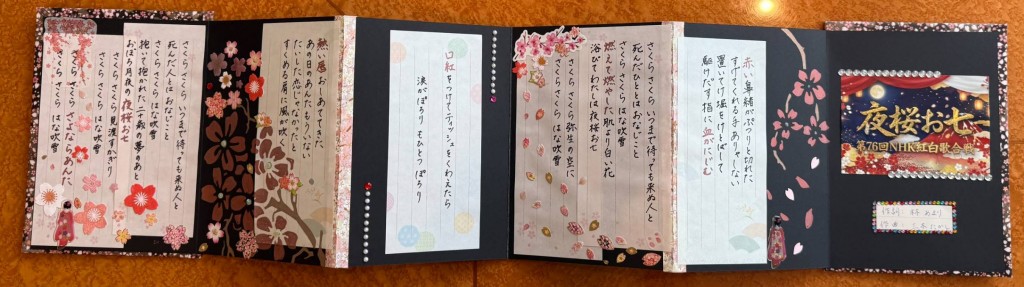 夜桜お七
第76回NHK紅白歌合戦
作詞: 林 あまり
赤い鼻緒がぷつりと切れた
すげてくれる手ありゃしない
置いてけ堀をけとばして
駆けだす指に血がにじむ
さくら さくら いつまで待っても来ぬ人と
死んだひととは おなじこと
さくら さくら はな吹雪
燃えて燃やした肌より白い花
浴びてわたしは 夜桜お七
さくら さくら 弥生の空に
さくら さくら はな吹雪
口紅をつけてティッシュをくわえたら
涙がぽろり もひとつ ぽろり
熱い唇おしあててきた
あの日のあんたもういない
たいした恋じゃなかったと
すくめる肩に風が吹く
さくら さくら いつまで待っても来ぬ人と
死んだ人とは おなじこと
さくら さくら はな吹雪
抱いて抱かれた 二十歳の夢のあと
おぼろ月夜の 夜桜お七
さくら さくら 見渡すかぎり
さくら さくら はな吹雪
さくら さくら さよならあんた
さくら さくら はな吹雪